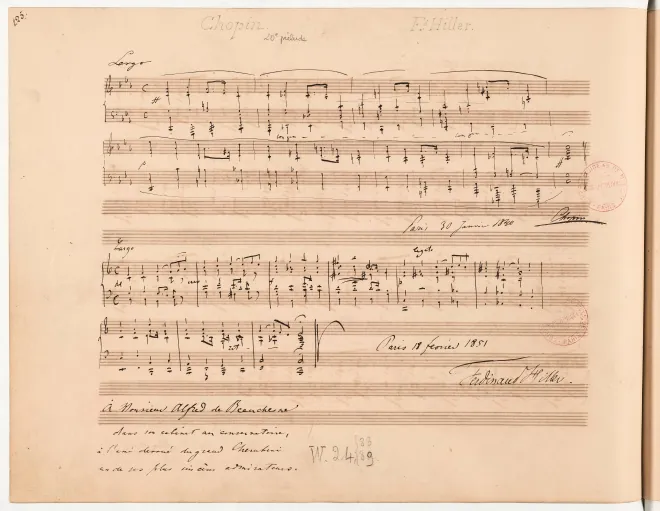 125.
Chopin
Fd Hiller.
20e prélude
Largo
Paris 30 Janvier 1840
Chopin
Largo
legato
Paris 18 février 1851
Ferdinand Hiller.
À Monsieur Alfred de Beauchesne
dans son cabinet au conservatoire,
à l'ami dévoué du grand Cherubini
un de ses plus sincères admirateurs.
W. 24